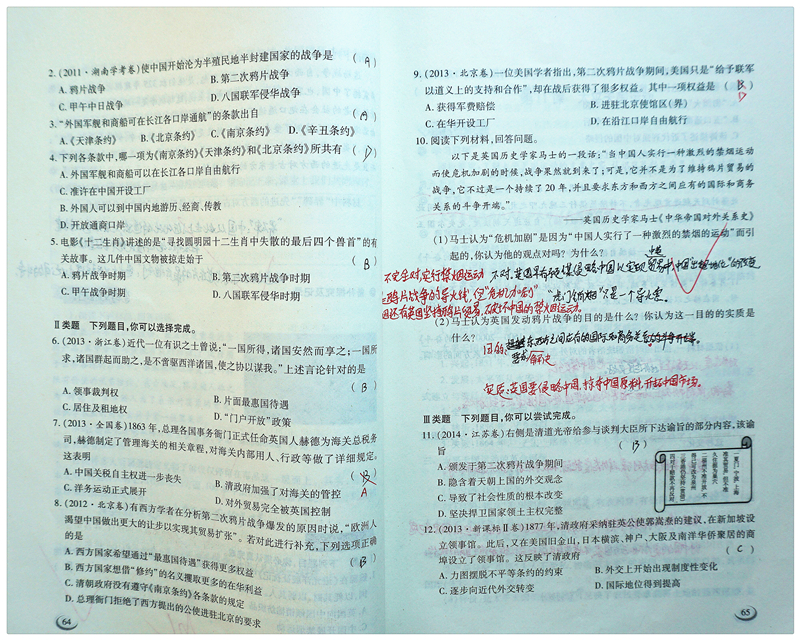 2.(2011·湖南学考卷)使中国开始沦为半殖民地半封建国家的战争是 (A)
A.鸦片战争 B.第二次鸦片战争
C.甲午中日战争 D.八国联军侵华战争
3.“外国军舰和商船可在长江各口岸通航”的条款出自 (A)
A.《天津条约》 B.《北京条约》 C.《南京条约》 D.《辛丑条约》
4.下列各条款中,哪一项为《南京条约》《天津条约》和《北京条约》所共有 (D)
A.外国军舰和商船可以在长江各口岸自由航行
C.准许在中国开设工厂
B.外国人可以到中国内地游历、经商、传教
D.开放通商口岸
5.电影《十二生肖》讲述的是“寻找圆明园十二生肖中失散的最后四个兽首”的有
关故事。这几件中国文物被掠走始于 (B)
A.鸦片战争时期 B.第二次鸦片战争时期
C.甲午战争时期 D.八国联军侵华时期
Ⅱ类题 下列题目,你可以选择完成。
6.(2013·浙江卷)近代一位有识之士曾说:“一国所得,诸国安然而享之;一国所
求,诸国群起而助之,是不啻驱西洋诸国,使之协以谋我。”上述言论针对的是
(B)
A.领事裁判权 B.片面最惠国待遇
C.居住及租地权 D.“门户开放”政策
7.(2013·全国卷)1863年,总理各国事务衙门正式任命英国人赫德为海关总税务
司,赫德制定了管理海关的相关章程,对海关内部用人、行政等做了详细规定。
这表明
A.中国关税自主权进一步丧失 B.清政府加强了对海关的管控
C.洋务运动正式展开 D.对外贸易完全被英国控制
A
8.(2012·北京卷)有西方学者在分析第二次鸦片战争爆发的原因时说,“欧洲人
渴望中国做出更大的让步以实现其贸易扩张”。若对此进行补充,下列选项正确
的是 (B)
A.西方国家希望通过“最惠国待遇”获得更多权益
B.西方国家想借“修约”的名义攫取更多的在华利益
C.清朝政府没有遵守《南京条约》各条款的规定
D.总理衙门拒绝了西方提出的公使进驻北京的要求
64
9.(2013·北京卷)一位美国学者指出,第二次鸦片战争期间,美国只是“给予联军
以道义上的支持和合作”,却在战后获得了很多权益。其中一项权益是 (B)
D
A.获得军费赔偿 B.进驻北京使馆区(界)
C.在华开设工厂 D.在沿江口岸自由航行
10.阅读下列材料,回答问题。
以下是英国历史学家马士的一段话:“当中国人实行一种激烈的禁烟运动
而使危机加剧的时候,战争果然就到来了;可是,它并不是为了维持鸦片贸易的
战争,它不过是一个持续了20年,并且要在东方和西方之间应有的国际和商务
关系的斗争开端。”
——英国历史学家马士《中华帝国对外关系史》
(1)马士认为“危机加剧”是因为“中国人实行了一种激烈的禁烟运动”而引
起的,你认为他的观点对吗?为什么?
不完全对,实行禁烟运动
是鸦片战争的导火线,但“危机加剧”
“虎门销烟”只是一个导火索
因还有英国坚持鸦片贸易,破坏中国的禁烟运动。
(2)马士认为英国发动鸦片战争的目的是什么?你认为这一目的的实质是
什么?
目的:
实质:英国要侵略中国,掠夺中国原料,开拓中国市场。
Ⅲ类题 下列题目,你可以尝试完成。
11.(2014·江苏卷)右侧是清道光帝给参与谈判大臣所下达谕旨的部分内容,该谕
旨 (B)
A.颁发于第二次鸦片战争期间
B.隐含着天朝上国的外交观念
C.导致了社会性质的根本改变
D.坚决捍卫国家领土主权完整
12.(2013·新课标Ⅱ卷)1877年,清政府采纳驻英公使郭嵩焘的建议,在新加坡设
立领事馆。此后,又在美国旧金山,日本横滨、神户、大阪及南洋华侨聚居的商
埠设立了领事馆。这反映了清政府 (C)
A.力图摆脱不平等条约的约束 B.外交上开始出现制度性变化
C.逐步向近代外交转变 D.国际地位得到提高
65